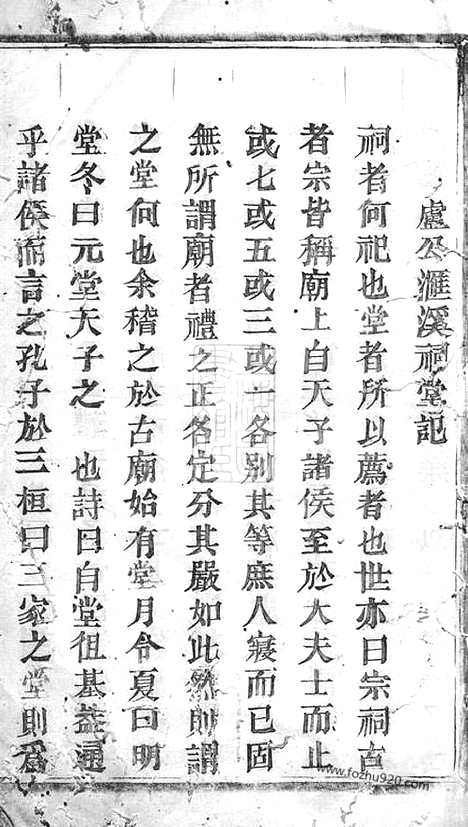 盧公滙溪祠堂記
祠者何祀也堂者所以薦者也世亦曰宗祠古
者宗皆稱廟上自天子諸侯至於大夫士而止
或七或五或三或一各别其等庶人寢而已固
無所謂廟者禮之正各定分其嚴如此然則謂
之堂何也余稽之於古廟始有堂月令夏曰明
堂冬曰元堂天子之 也詩曰自堂徂基益通
乎諸侯而言之孔子於三桓曰三家之堂則爲
www.fozhu920.com